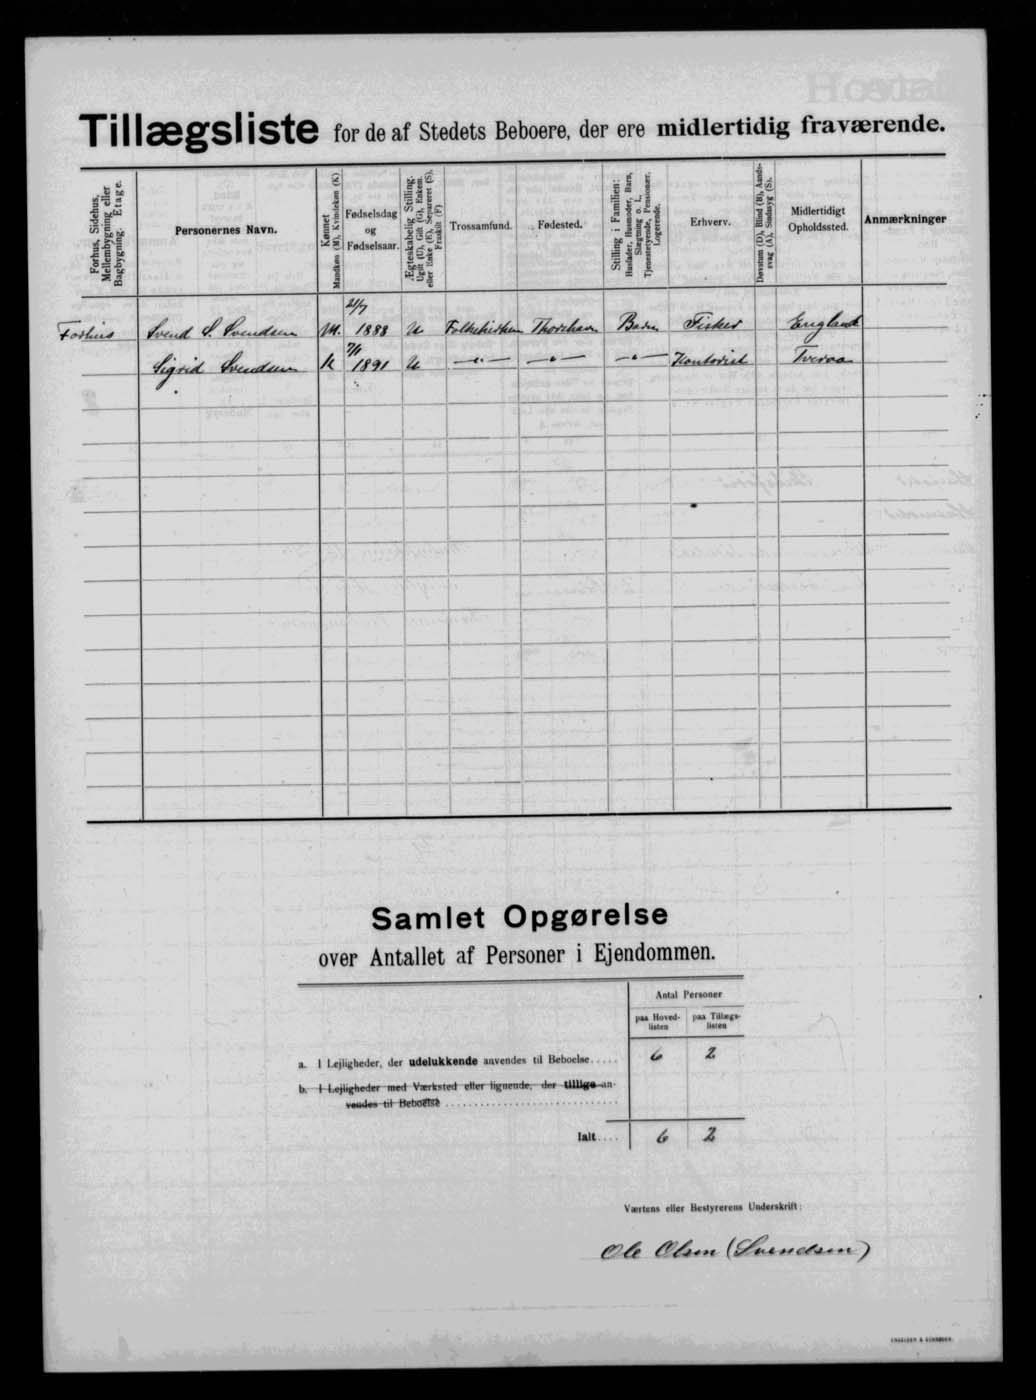 Tillægsliste for de af Stedets Beboere, der ere midlertidig fraværende.
Forhus, Sidehus, Mellembygning eller Bagbygning. Etage.
Personernes Navn.
Kønnet Mandkøn (M), Kvindekøn (K)
Fødselsdag og Fødselsaar.
Ægteskabelig Stilling. Ugift (U), Gift (G), Enkem. eller Enke (E), Separeret (S), Fraskilt (F)
Trossamfund.
Fødested.
Stilling i Familien: Husfader, Husmoder, Barn, Slægtning o. l., Tjenestetyende, Pensionær, Logerende.
Erhverv.
Døvstum (D), Blind (B), Aandssvag (A), Sindssyg (S).
Midlertidigt Opholdssted.
Anmærkninger
Forhus Svend S. Svendsen M. 1888 U Folkekirken Thorshavn Fisker England
Sigrid Svendsen K 1891 U —〃— —〃— —〃— Kontorist Tveraa
Samlet Opgørelse
over Antallet af Personer i Ejendommen.
Antal Personer
paa Hoved- listen
paa Tillægs- listen
a. I Lejligheder, der udelukkende anvendes til Beboelse..... 6 2
b. I Lejligheder med Værksted eller lignende, der tillige an-
vendes til Beboelse
Ialt.... 6 2
Værtens eller Bestyrerens Underskrift:
Ole Olsen (Svendsen)